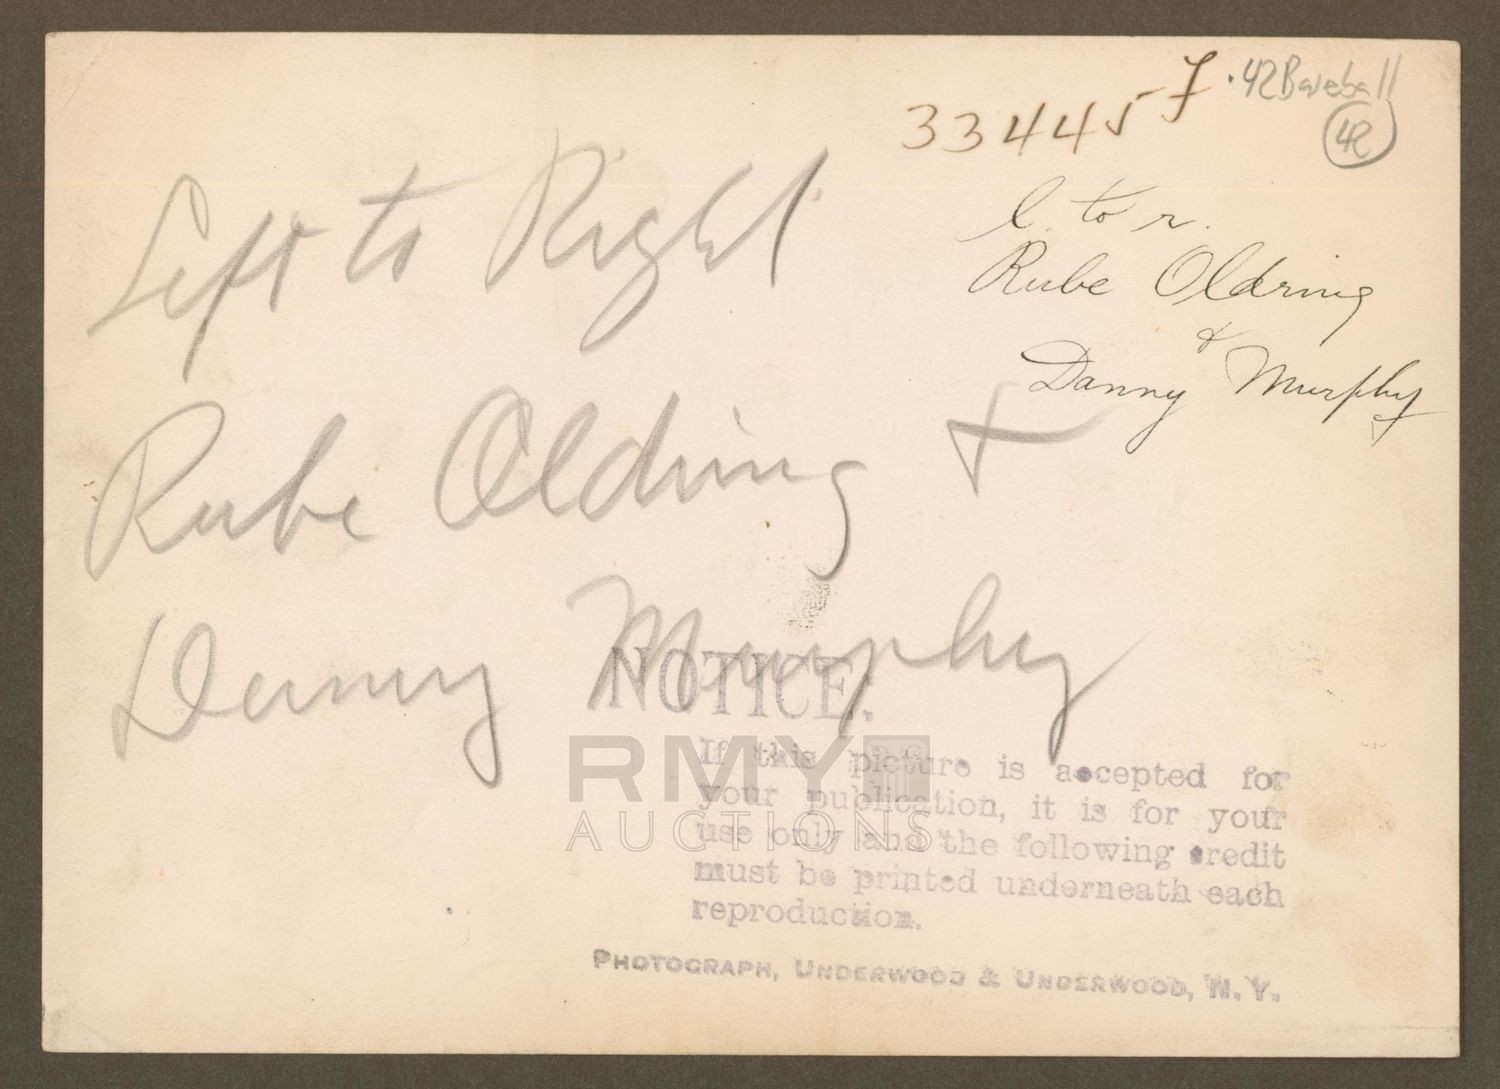 33445 F
·42 Baseball
42
l. to r.
Rube Oldring
&
Danny Murphy
Left to Right
Rube Oldring +
Danny Murphy
NOTICE:
If this picture is accepted for
your publication, it is for your
use only and the following credit
must be printed underneath each
reproduction.
PHOTOGRAPH, UNDERWOOD & UNDERWOOD, N. Y.
RMY
AUCTIONS